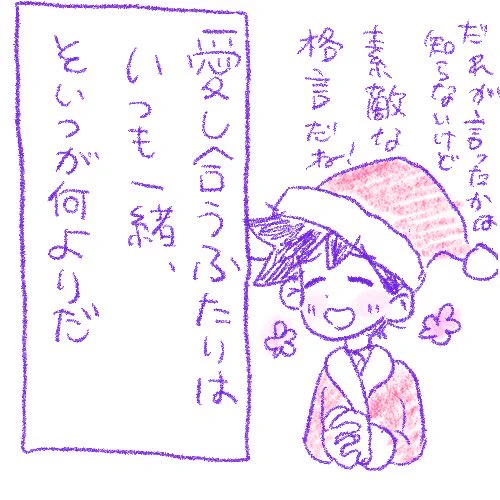 だれが言ったかは
知らないけど
素敵な
格言だね!
愛し合うふたりは
いつも一緒、
といつが何よりだ